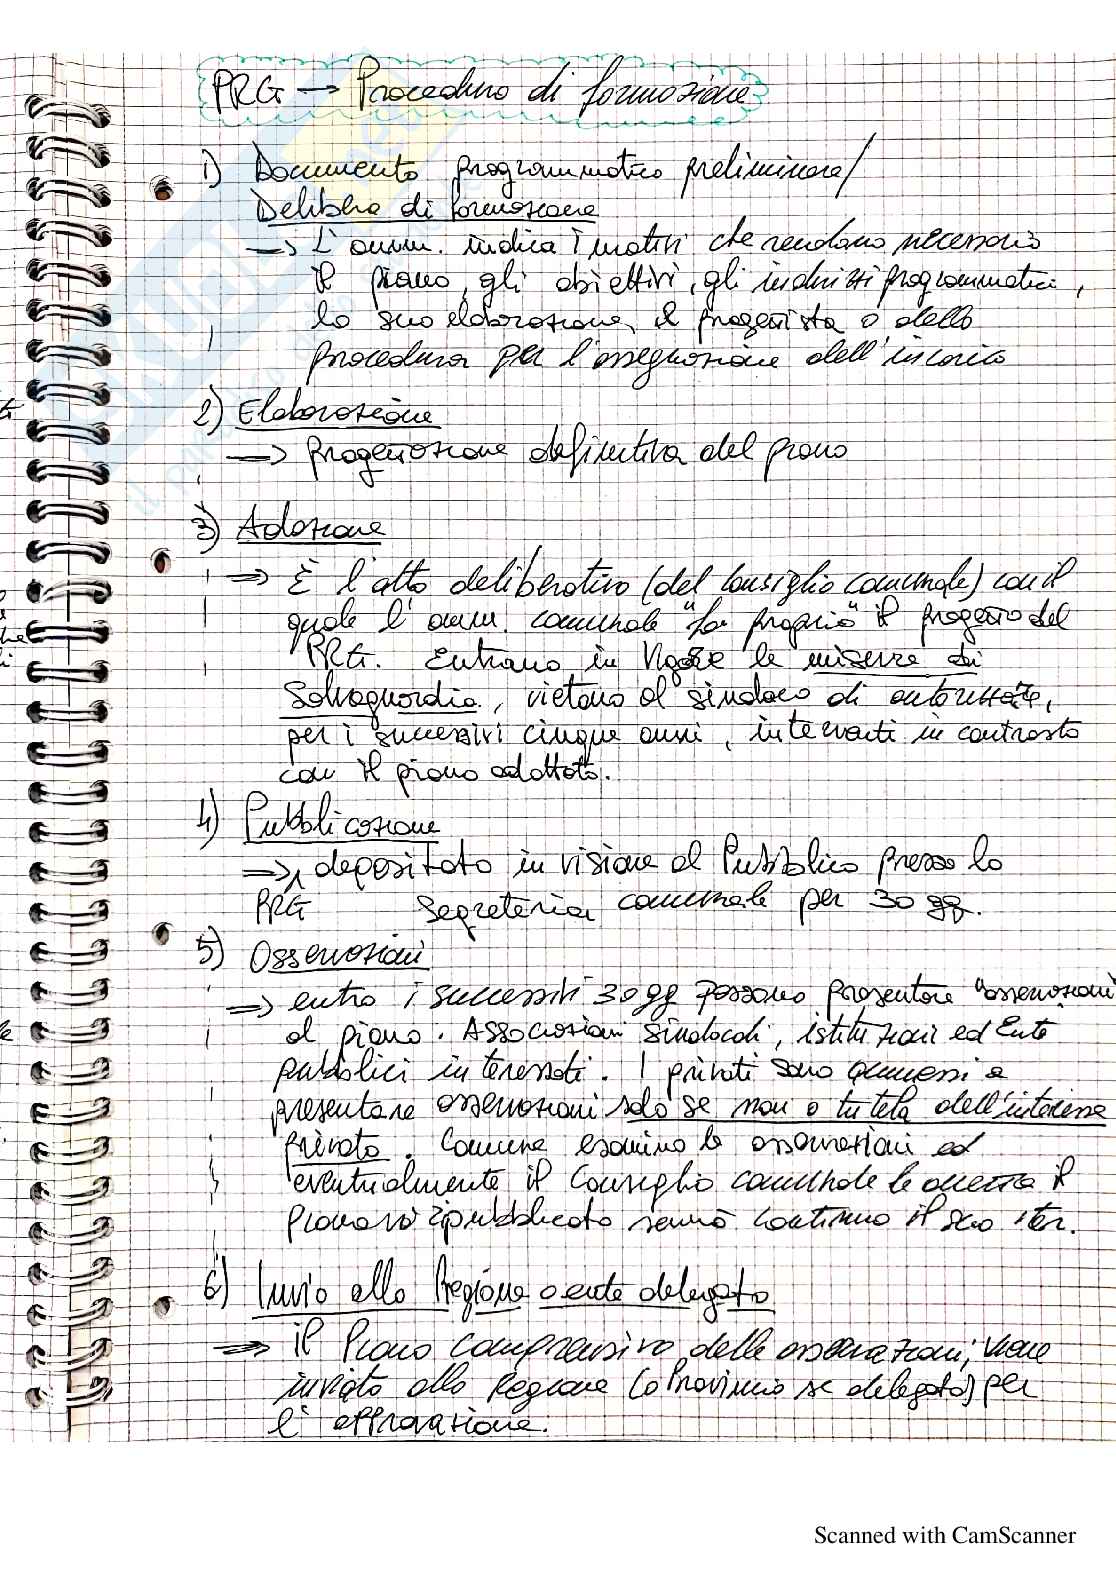 PRG → Procedura di formazione
1) Documento programmatico preliminare/
Delibera di formazione
→ L'amm. indica i motivi che rendono necessario
il piano, gli obiettivi, gli indirizzi programmatici,
la sua elaborazione, il progettista o della
procedura per l'assegnazione dell'incarico
2) Elaborazione
→ progettazione definitiva del piano
3) Adozione
→ È l'atto deliberativo (del Consiglio comunale) con il
quale l'amm. comunale "fa proprio" il progetto del
PRG. Entrano in vigore le misure di
Salvaguardia, vietano al sindaco di autorizzare,
per i successivi cinque anni, interventi in contrasto
con il piano adottato.
4) Pubblicazione
→ depositato in visione al Pubblico presso la
PRG Segreteria comunale per 30 gg.
5) Osservazioni
→ entro i successivi 30 gg possono presentare "osservazioni
al piano. Associazioni sindacali, istituzioni ed Enti
pubblici interessati. I privati sono ammessi a
presentare osservazioni solo se non a tutela dell'interesse
privato. Comune esamina le osservazioni ed
eventualmente il Consiglio comunale le il
Piano va ripubblicato sennò continua il suo iter.
6) Invio alla Regione o ente delegato
→ il Piano comprensivo delle osservazioni, viene
inviato alla Regione (o Provincia se delegata) per
l'approvazione.
Scanned with CamScanner